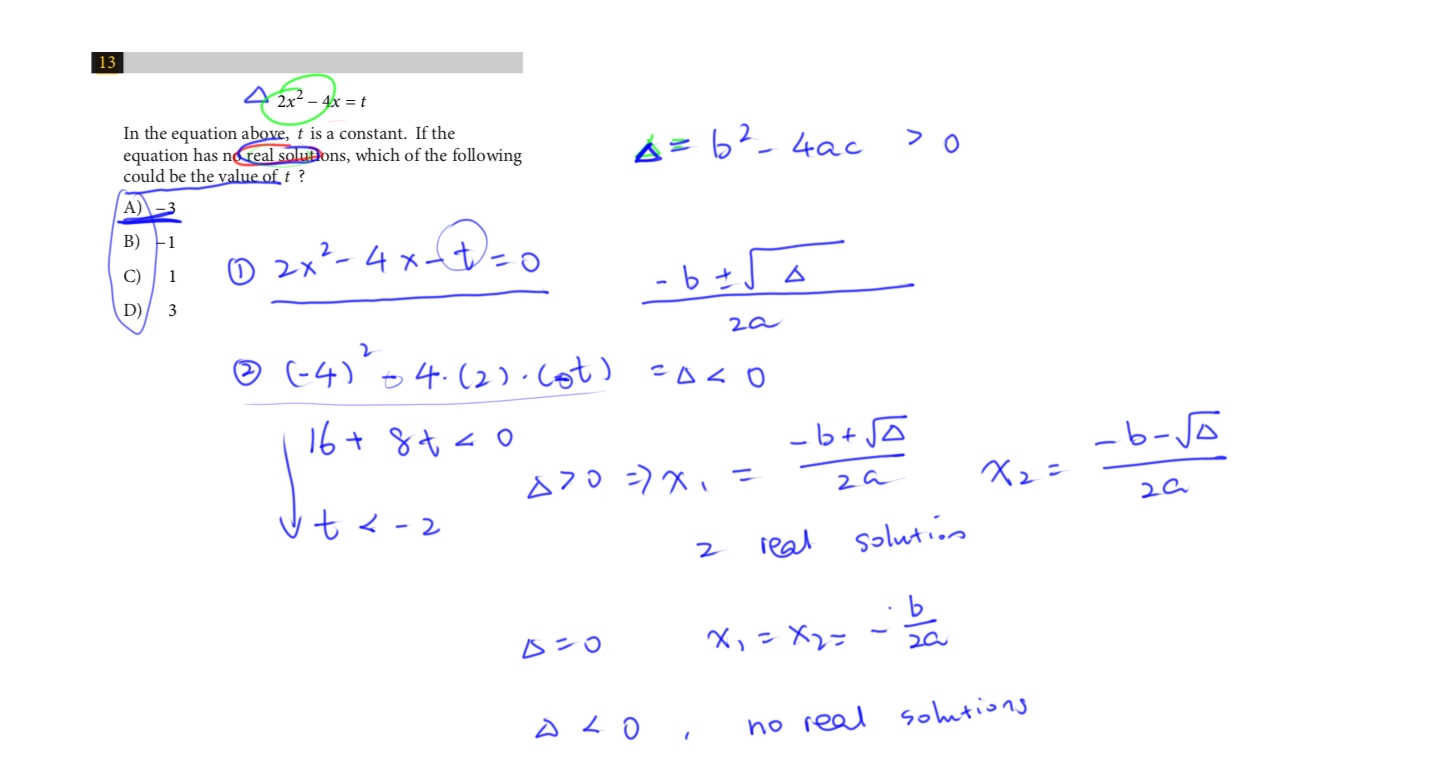 13
Δ 2x² – 4x = t
In the equation above, t is a constant. If the
equation has no real solutions, which of the following
could be the value of t ?
A) –3
B) –1
C) 1
D) 3
Δ = b² - 4ac > 0
① 2x² - 4x - t = 0
-b ± √Δ
2a
② (-4)² - 4·(2)·(-t) = Δ < 0
16 + 8t < 0
t < -2
Δ > 0 ⇒ x₁ = -b+√Δ / 2a x₂ = -b-√Δ / 2a
2 real solution
Δ = 0 x₁ = x₂ = - b / 2a
Δ < 0 , no real solutions